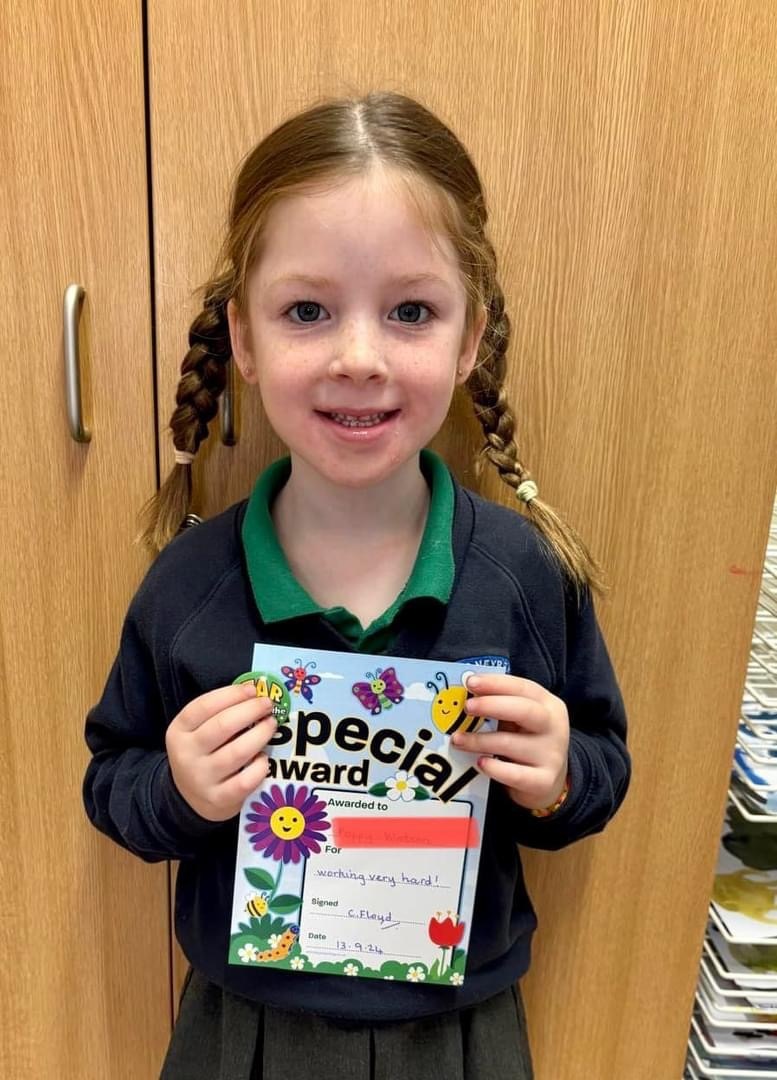 STAR
of the
special
award
Awarded to
For
working very hard!
Signed
C. Floyd
Date
13.9.24